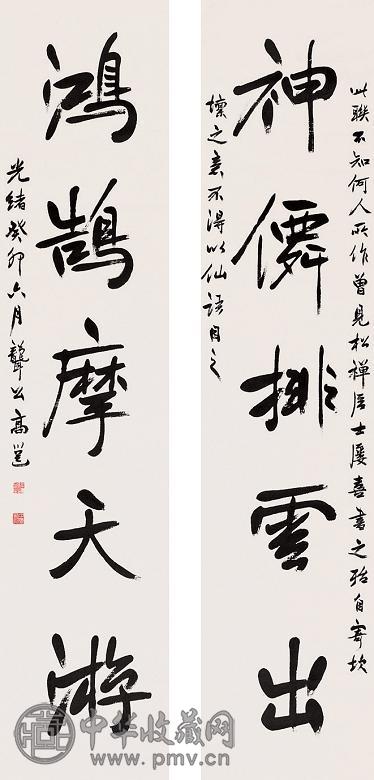 此聯不知何人所作曾見松禪居士屢喜書之殆自寄坎
神僊排雲出
壈之意不得以仙語目之
鴻鵠摩天游
光緒癸卯六月聾公高邕
中华收藏网
www.pmv.cn